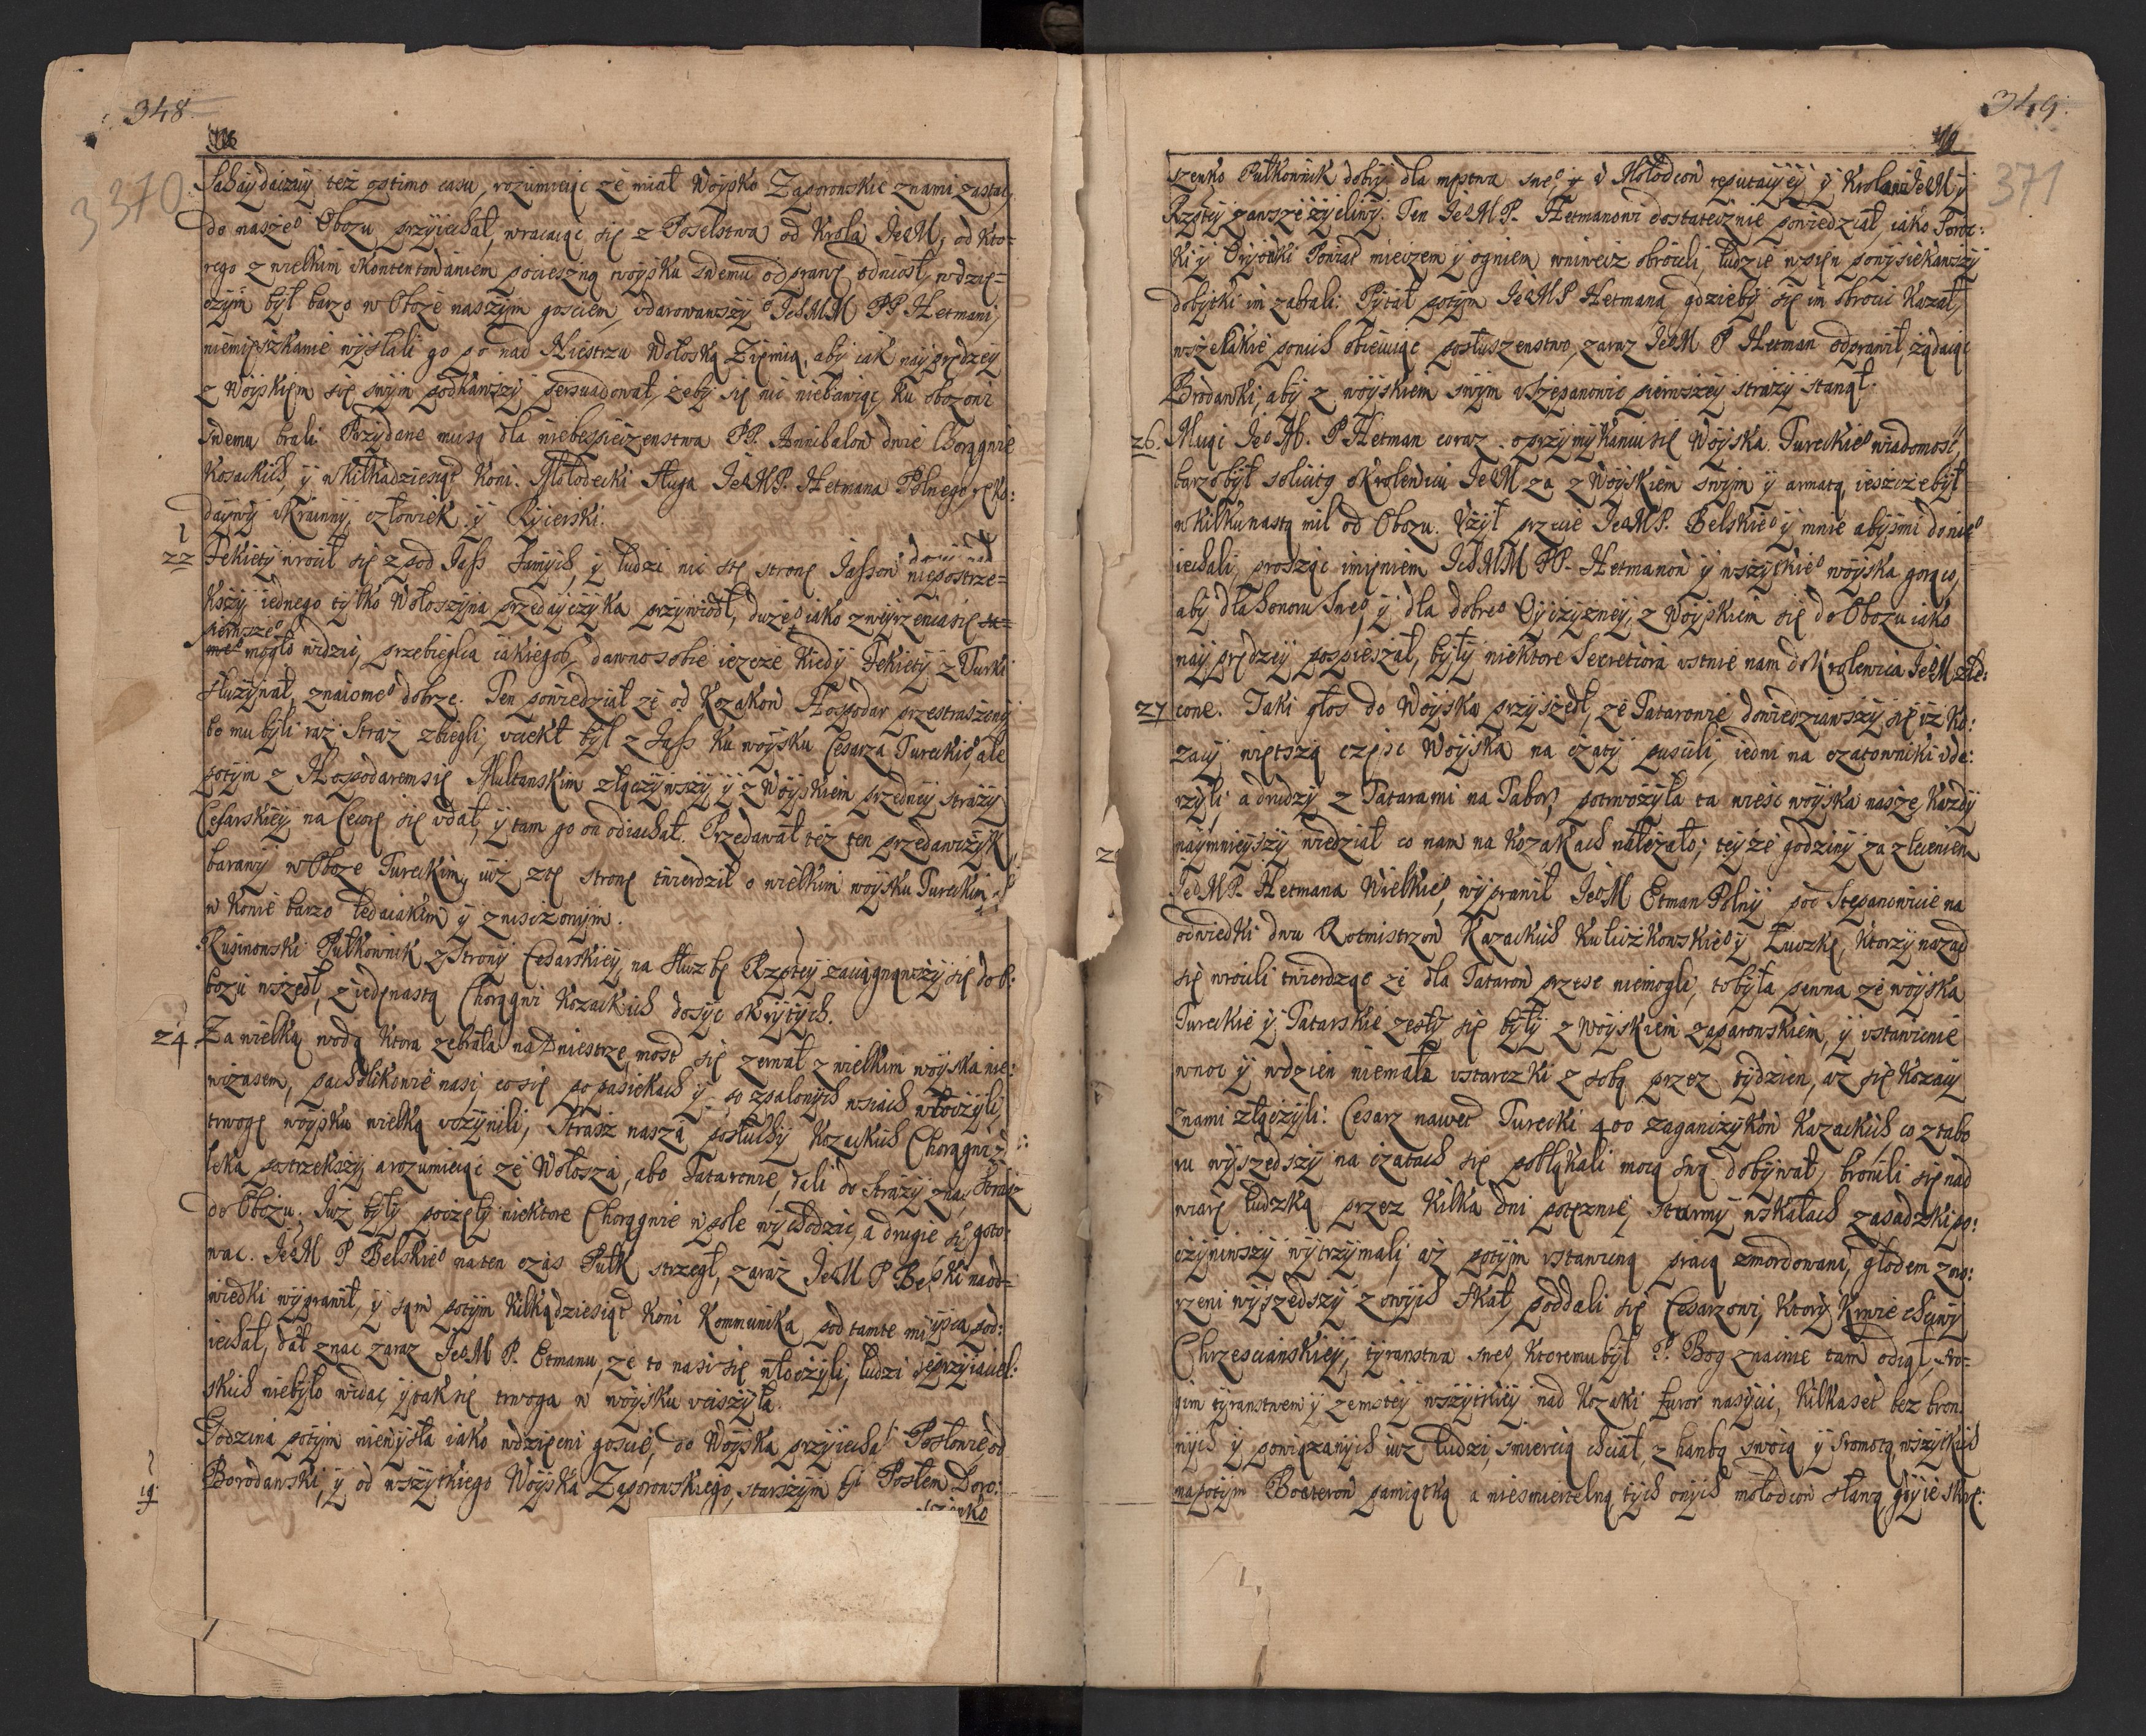 348.
370
Sahaydaczny też optimo casu, rozumieiąc że miał Woysko Zaporowskie z nami zastac,
do nasze° Obozu przyiechał, wracaiąc się z Poselstwa od Krola Je°M, od kto=
rego z wielkim ukontentowaniem pocieszną woysku swemu odprawę odniosł, wdzię=
cznym był barzo w Obozie naszym gosciem, udarowawszy ° IchMM PP Hetmani,
niemięszkanie wysłali go po nad Niestrza Wołoską Ziemią, aby iak nayprędzey
z Woyskiem się swym podkawszy persuadował, żeby się nic niebawiąc ku obozowi
swemu brali. Przydane muszą dla niebespieczenstwa PP. Annibalow dwie Chorągwie
Kozackich, y w kilkadziesiąt Koni. Mołodecki Sługa Je°MP. Hetmana Polnego, ręko:
dayny Ukrainny, człowiek y Rycerski.
22 Fekiety wrocił się z pod Jass samych, y ludzi nic po stronę Jassow niepostrze=
kszy iednego tylko Wołoszyna przedayczyka przywiodł, duże° iako z weyrzenia się
pierwsze° mogło widzieć, przebieglca iakiegoś, dawno sobie ieszcze kiedy Fekiety z Turki
służywał, znaiome° dobrze. Ten powiedział że od Kozakow Hospodar przestraszony
bo mu byli raz Straż zbiegli, uciekł był z Jass ku woysku Cesarza Tureckie°, ale
potym z Hospodarem się Multanskim złączywszy y z Woyskiem przedney straży
Cesarskiey na Cecorę się udał, y tam go on odiachał. Przedawał też ten przedawczyk
barany w Obozie Tureckim, iuż z tę stronę twierdził o wielkim woysku Tureckim
w Konie barzo ledaiakim y zniszczonym.
Rusinowski Pułkownik z Strony Cesarskiey, na służbę Rzptey zaciągnąwszy się do O:
bozu wszedł, z iedenastą Chorągwi Kozackich dosyc okrytych.
24. Za wielką wodą ktora zebrała na Dniestrze, most się zerwał z wielkim woyska nie:
wczasem, pacholikowie nasi, co się po pasiekach y po spalonych wsiach włoczyli,
trwogę woysku wielką uczynili, Strasz naszą posłuchy Kozackich Chorągwi z
leka postrzekszy, a rozumieiąc że Wołosza, abo Tatarowie, dali do Straży znac, Straż
do Obozu. Już były poczęły niektore Chorągwie w pole wychodzic, a drugie się goto:
wac. Je°M P Belskie° na ten czas Pułk strzegł, zaraz Je°M P Belski na od=
wiedki wyprawił, y sąm potym kilkądziesiąt koni Kommunika pod tamte mieysca pod:
iechał, dał znac zaraz Je°M P. Etmanu, że to nasi się włoczyli, ludzi nieprzyiaciel:
skich niebyło widac, y tak się trwoga w woysku uciszyła.
Godzina potym niewyszła iako wdzięcni goscie, do Woyska przyiechali Posłowie, od
19 Borodawki, y od wszytkiego Woyska Zaporowskiego, starszym był Posłem Doro:
szenko
349.
371
szenko Pułkownik dobry, dla męstwa swe° y u Mołodcow reputacyey y Krolowi Je°M y
Rzptey zawsze życzliwy. Ten Je°MP. Hetmanowi dostatecznie powiedział, iako Soroc:
ki y Oryowki Powiat mieczem y ogniem wniwecz obrocili, ludzie wpień powysiekawszy
dobytki im zabrali. Pytał potym Je°MP Hetmana gdzieby się im obrocic kazał,
wszelakie ponich obiecuiąc posłuszenstwo, zaraz Je°M P Hetman odprawił, żądaiąc
Brodawki, aby z woyskiem swym u Stepanowic pierwszey straży stanął.
26. Maiąc Je°M. P Hetman coraz o przymykaniu się Woyska Tureckie° wiadomosc,
barzo był solicitę o Krolewicu Je°M za z Woyskiem swym y armatą, ieszcze był
w kilkunastą mil od Obozu. Użył przecie Je°MP. Belskie° y mnie abysmi do nie°
iechali, prosząc imięniem IchMM PP. Hetmanow y wszytkie° woyska gorąco,
aby dla honoru Swe°, y dla dobre° Oyczyzney, z Woyskiem się do Obozu iako
nayprędzey pospieszał, były niektore Secretiora ustnie nam do Krolewica Je°M zle:
27 cone. Taki głos do Woyska przyszedł, że Tatarowie dowiedziawszy się iż Ko:
zacy większą częsc Woyska na czaty puscili, iedni na czatowniki ude:
rzyli, a drudzy z Tatarami na Tabor, potrwożyła ta wiesc woyska nasze, każdy
naymnieyszy wiedział co nam na Kozakach należało, teyże godziny za zleceniem
Je°MP. Hetmana Wielkie°, wyprawił Je°M Etman Polny pod Stepanowice na
odwiedki dwu Rotmistrzow Kazackich Kuliczkowskie° y Łuczkę, ktorzy nazad
się wrocili twierdząc że dla Tatarow przesc niemogli, to była pewna że woyska
Tureckie y Tatarskie zeszły się były z Woyskiem zaporowskiem, y ustawicnie
wnoc y wdzien niemałe ustarczki z sobą przez tydzien, aż się Kozacy
znami złączyli. Cesarz nawet Turecki 400 zaganiczykow Kazackich co z tabo
ru wyszedszy na czatach się pobłąkali mocą swą dobywał, bronili się nad
wiarę ludzką przez kilka dni potężnie, szturmy w skałach zasadzki po:
czyniwszy wytrzymali, aż potym ustawiną pracą zmordowani, głodem zmo:
rzeni wyszedszy z owych skał, poddali się Cesarzowi, ktory krwie chciwy
Chrzescianskiey, tyranstwa swe°, ktoremu był P. Bog znacnie tam odiął, sro=
gim tyranstwem y zemstey wszytkiey nad Kozaki furor nasycic, kilkaset bez bron
nych y powiązanych iuż ludzi, smiercią chciał, z hanbą swoią y sromotą, wszytkich
napotym Boaterow pamiątką a niesmiertelną tych onych mołodcow sławą, gdy ie skrę: